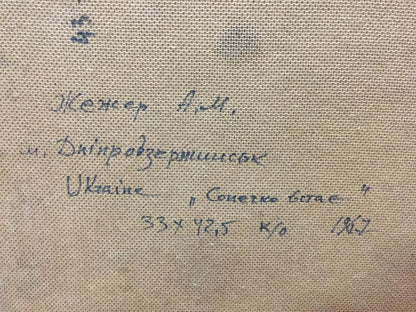 43
Жежер А.М.
м. Дніпродзержинськ
Ukraine „Сонечко встає"
33 х 42,5 к/о 1967